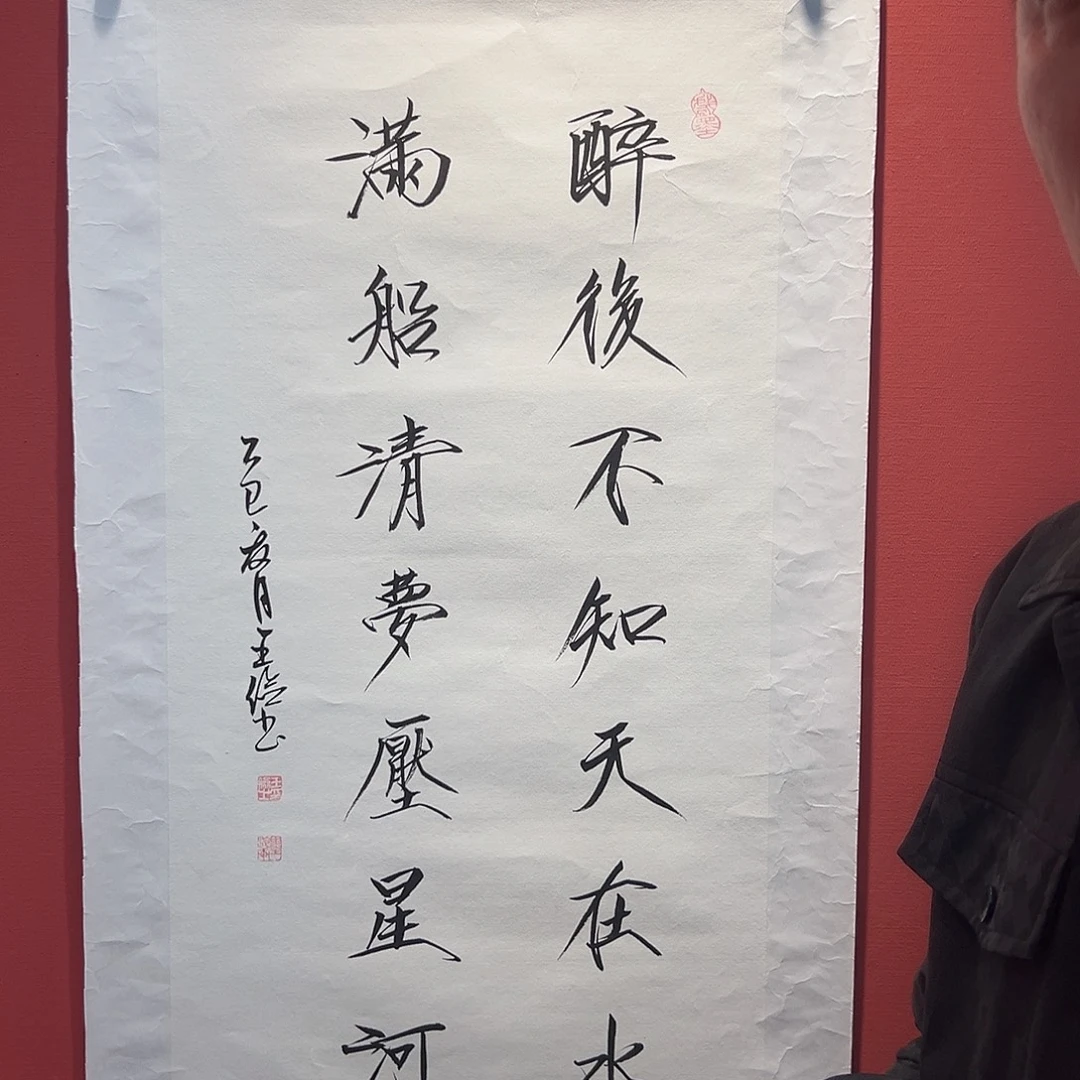 醉後不知天在水
滿船清夢壓星河
乙巳夏月王書